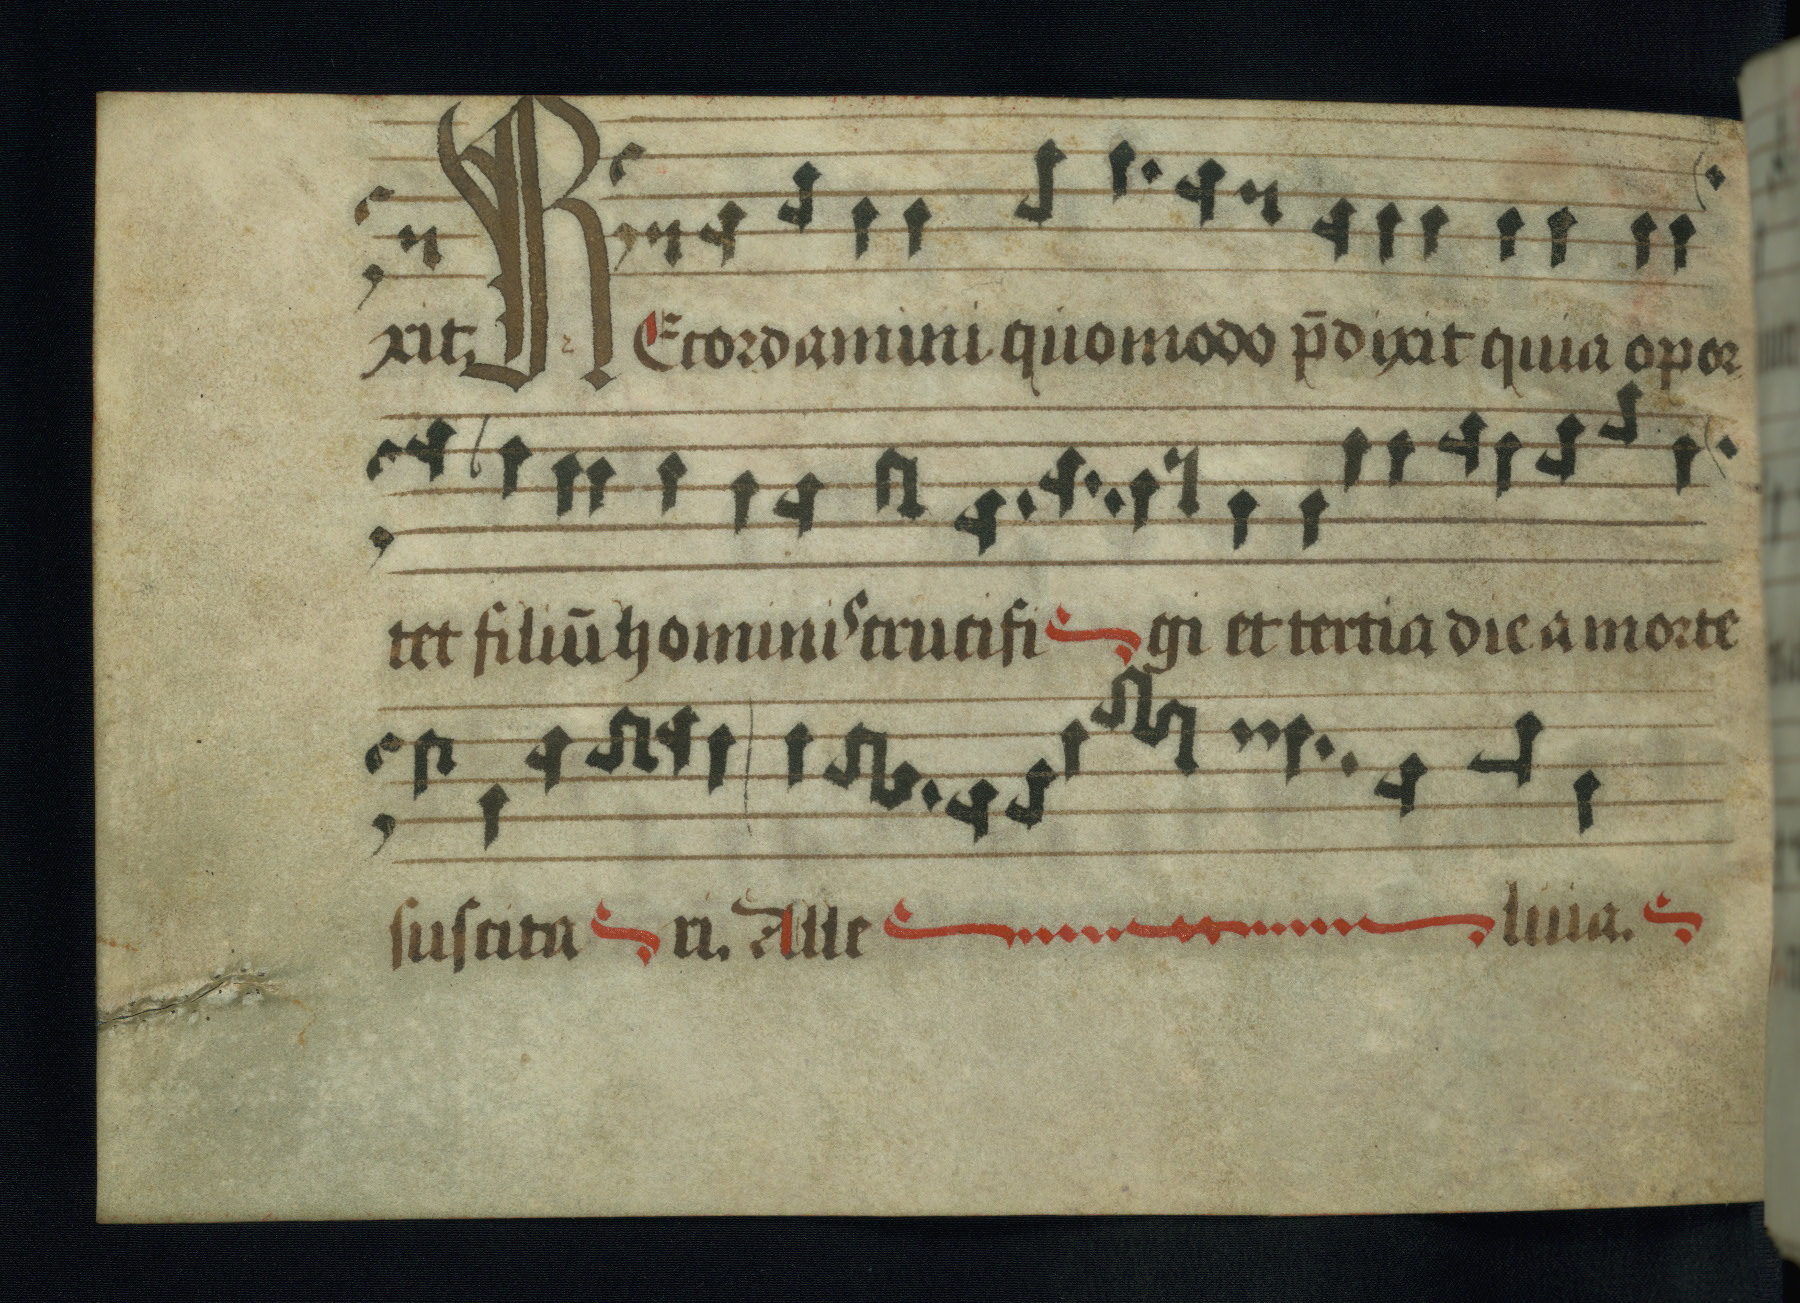 xit. REcordamini quomodo p̄dixit quia opor
tet filiū hominis crucifi gi et tertia die a morte
suscita ri. Alle luia.